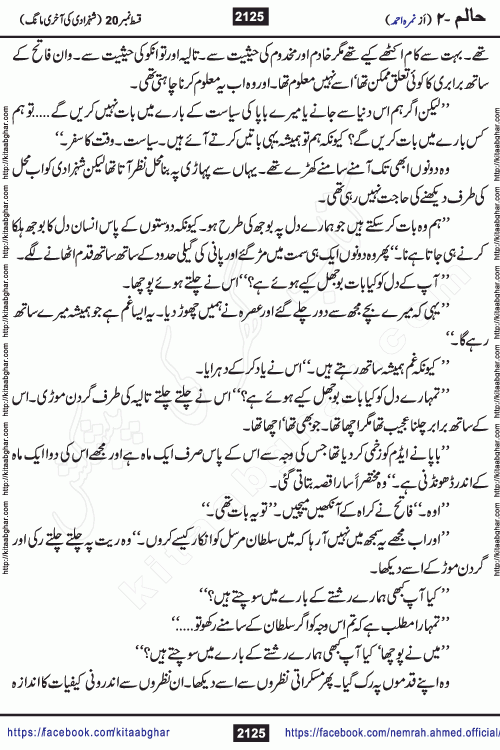 حالم -۲ (از نمرہ احمد)
2125
قسط نمبر 20 (شہزادی کی آخری مانگ)
تھے۔ بہت سے کام اکٹھے کیے تھے مگر خادم اور مخدوم کی حیثیت سے۔ تالیہ اور توانکو کی حیثیت سے۔ وان فاتح کے
ساتھ برابری کا کوئی تعلق ممکن تھا‘ اسے نہیں معلوم تھا۔ اور وہ اب یہ معلوم کرنا چاہتی تھی۔
’’لیکن اگر ہم اس دنیا سے جانے یا میرے باپا کی سیاست کے بارے میں بات نہیں کریں گے.....تو ہم
کس بارے میں بات کریں گے؟ کیونکہ ہم تو ہمیشہ یہی باتیں کرتے آئے ہیں۔ سیاست۔ وقت کا سفر۔‘‘
وہ دونوں ابھی تک آمنے سامنے کھڑے تھے۔ یہاں سے پہاڑی پہ بنا محل نظر آتا تھا لیکن شہزادی کو اب محل
کی طرف دیکھنے کی حاجت نہیں رہی تھی۔
’’ہم وہ بات کر سکتے ہیں جو ہمارے دل پہ بوجھ کی طرح ہو۔ کیونکہ دوستوں کے پاس انسان دل کا بوجھ ہلکا
کرنے ہی جاتا ہے نا۔‘‘ پھر وہ دونوں ایک ہی سمت میں مڑ گئے اور پانی کی گیلی حدود کے ساتھ ساتھ قدم اٹھانے لگے۔
’’آپ کے دل کو کیا بات بوجھل کیے ہوئے ہے؟‘‘ اس نے چلتے ہوئے پوچھا۔
’’یہی کہ میرے بچے مجھ سے دور چلے گئے اور عصرہ نے ہمیں چھوڑ دیا۔ یہ ایسا غم ہے جو ہمیشہ میرے ساتھ
رہے گا۔‘‘
’’کیونکہ غم ہمیشہ ساتھ رہتے ہیں۔‘‘ اس نے یاد کر کے دہرایا۔
’’تمہارے دل کو کیا بات بوجھل کیے ہوئے ہے؟‘‘ اس نے چلتے چلتے تالیہ کی طرف گردن موڑی۔ اس
کے ساتھ برابر چلنا عجیب تھا مگر اچھا تھا۔ جو بھی تھا‘ اچھا تھا۔
’’باپا نے ایڈم کو زخمی کر دیا تھا جس کی وجہ سے اس کے پاس صرف ایک ماہ ہے اور مجھے اس کی دوا ایک ماہ
کے اندر ڈھونڈنی ہے۔‘‘ وہ مختصراً سارا قصہ بتاتی گئی۔
’’اوہ۔‘‘ فاتح نے کراہ کے آنکھیں میچیں۔ ’’تو یہ بات تھی۔‘‘
’’اور اب مجھے یہ سمجھ میں نہیں آ رہا کہ میں سلطان مرسل کو انکار کیسے کروں۔‘‘ وہ ریت پہ چلتے چلتے رکی اور
گردن موڑ کے اسے دیکھا۔
’’کیا آپ کبھی ہمارے رشتے کے بارے میں سوچتے ہیں؟‘‘
’’تمہارا مطلب ہے کہ تم اس وجہ کو اگر سلطان کے سامنے رکھو تو.....‘‘
’’میں نے پوچھا‘ کیا آپ کبھی ہمارے رشتے کے بارے میں سوچتے ہیں؟‘‘
وہ اپنے قدموں پہ رک گیا۔ پھر مسکراتی نظروں سے اسے دیکھا۔ ان نظروں سے اندرونی کیفیات کا اندازہ
https://facebook.com/kitaabghar
2125
https://facebook.com/nemrah.ahmed.official/
http://kitaabghar.com http://kitaabghar.com http://kitaabghar.com http://kitaabghar.com http://kitaabghar.com
http://kitaabghar.com http://kitaabghar.com http://kitaabghar.com http://kitaabghar.com http://kitaabghar.com